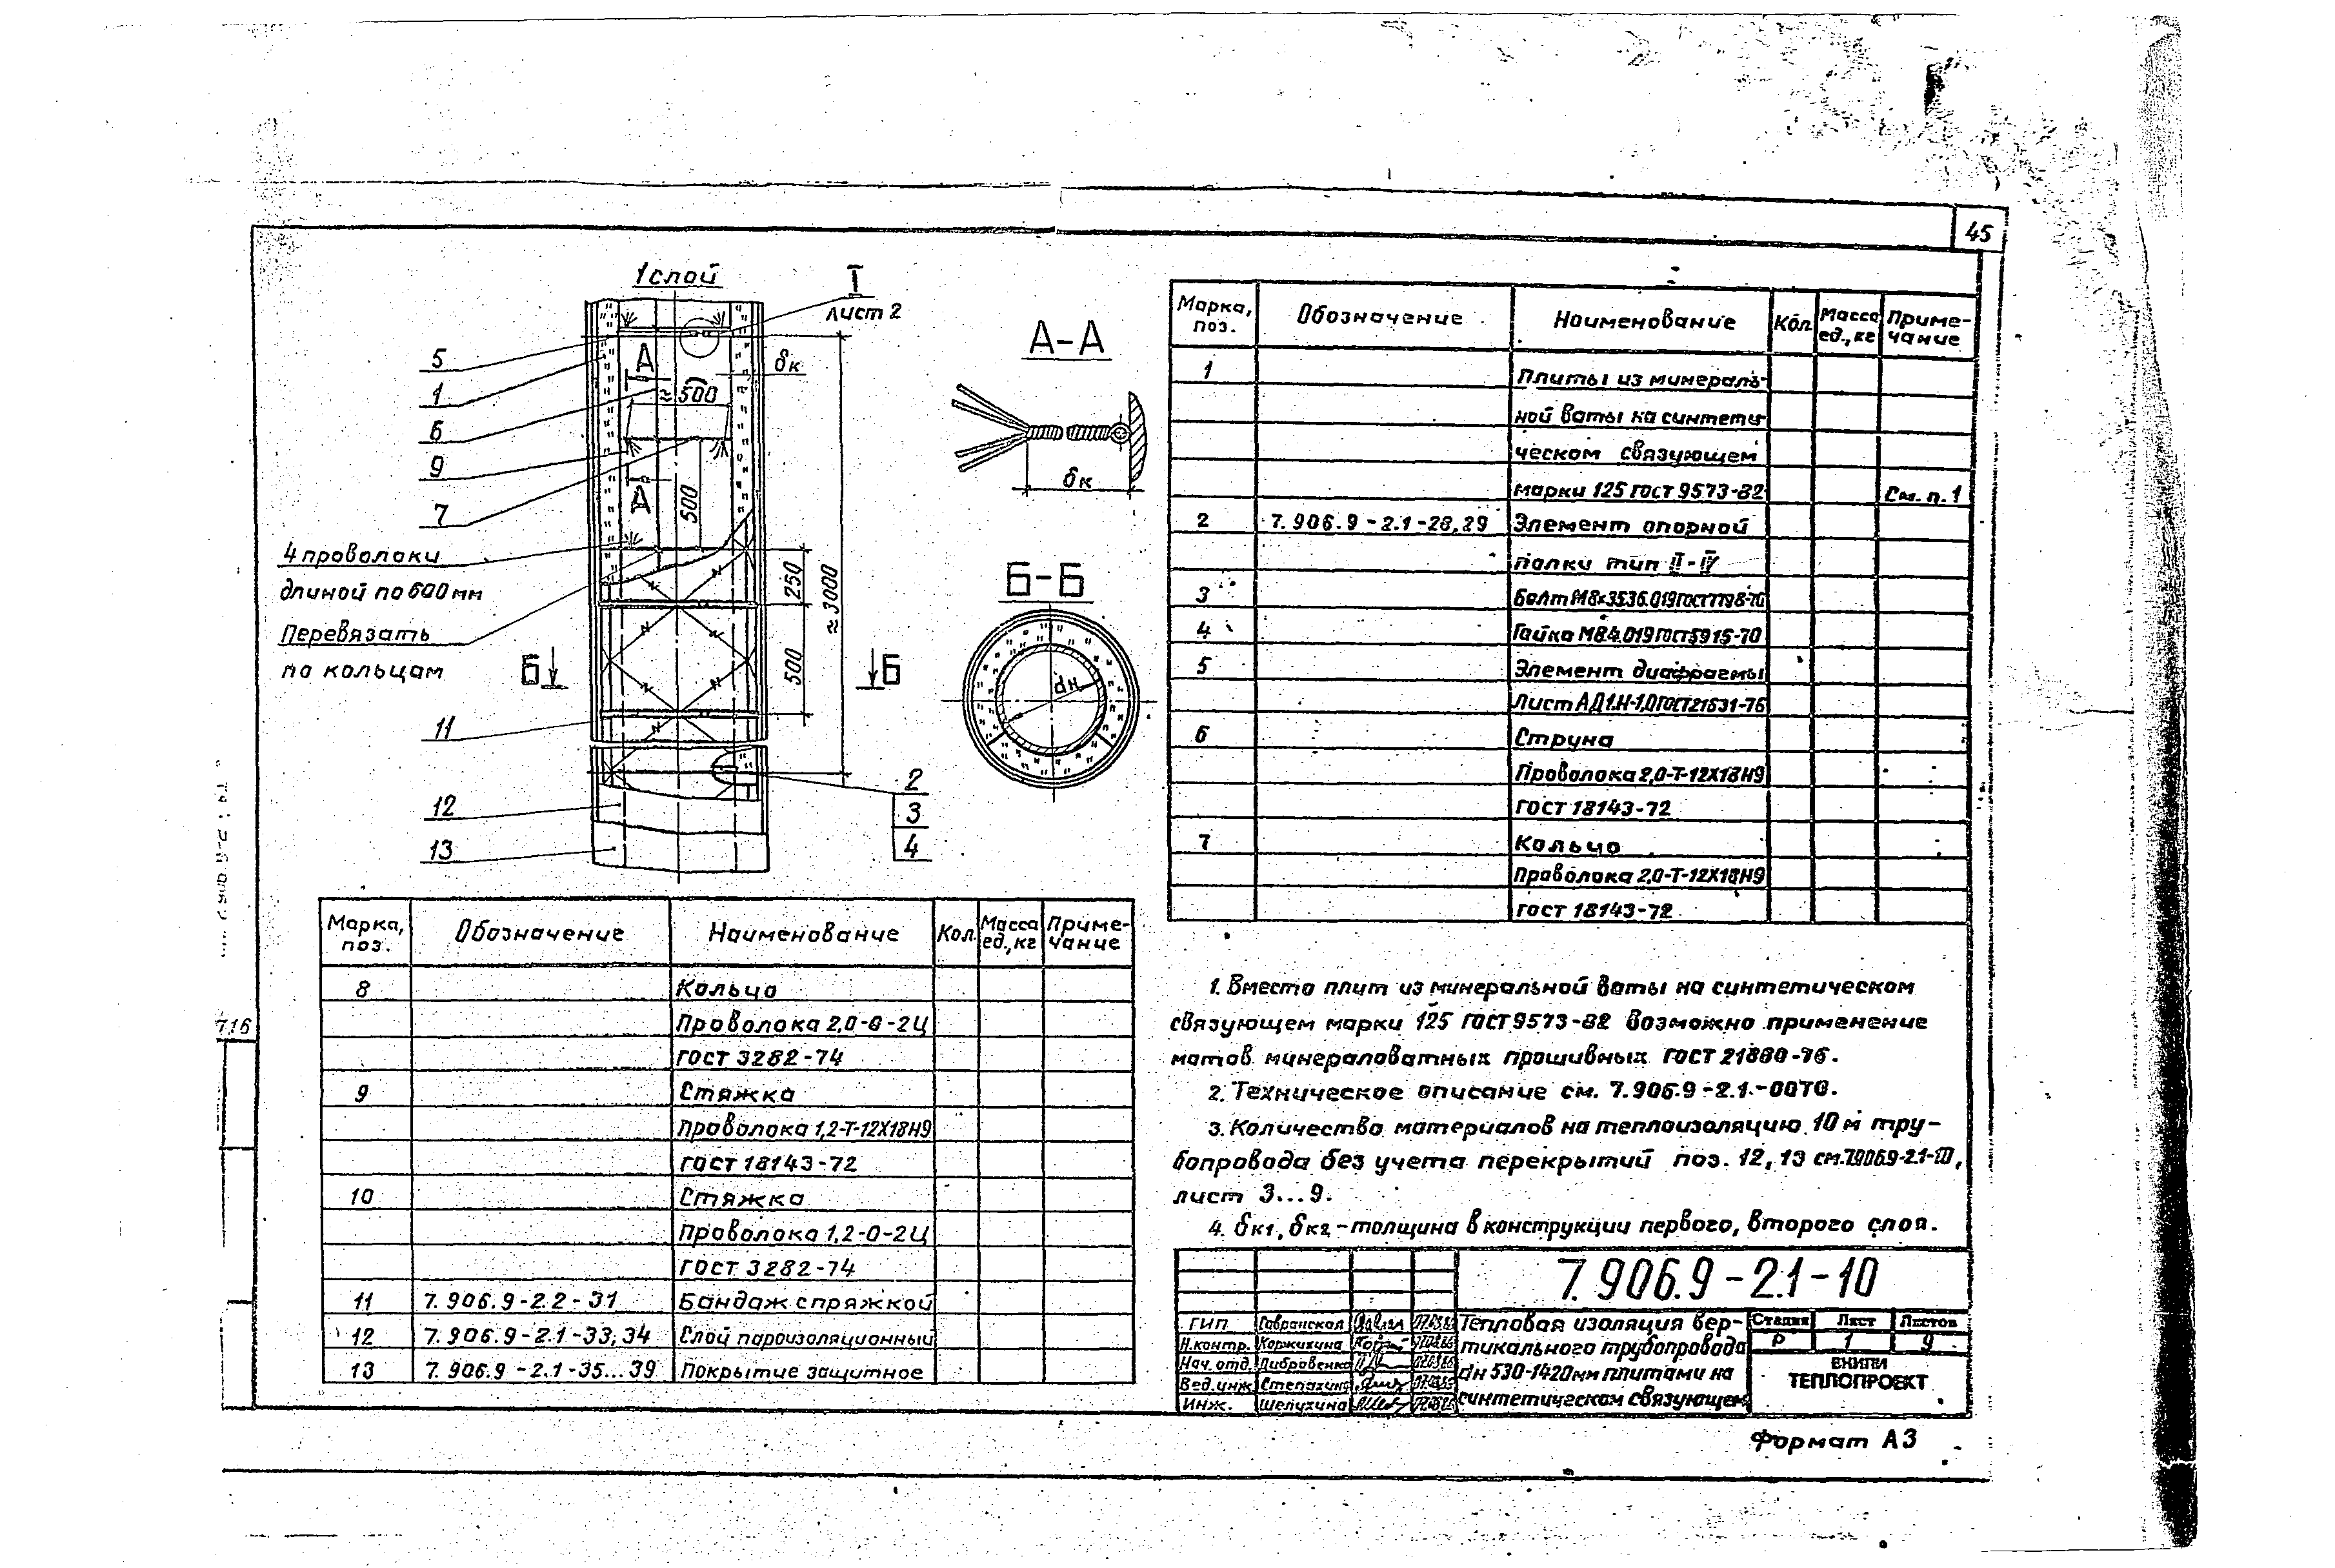 45
1 слой
I
лист 2
5
1
6
9
7
А
А
≈500
δк
500
250
500
≈3000
4 проволоки
длиной по 600 мм
Перевязать
по кольцам
Б
Б
11
12
13
2
3
4
А-А
δк
Б-Б
dн
Марка, поз. Обозначение Наименование Кол. Масса ед., кг Примечание
1 Плиты из минераль-
ной ваты на синтети-
ческом связующем
марки 125 ГОСТ 9573-82 См. п. 1
2 7.906.9-2.1-28,29 Элемент опорной
полки тип II-IV
3 Болт М8х35.36.019 ГОСТ 7798-70
4 Гайка М8.4.019 ГОСТ 5915-70
5 Элемент диафрагмы
Лист АД1.Н-1,0 ГОСТ 21631-76
6 Струна
Проволока 2,0-Т-12Х18Н9
ГОСТ 18143-72
7 Кольцо
Проволока 2,0-Т-12Х18Н9
ГОСТ 18143-72
Марка, поз. Обозначение Наименование Кол. Масса ед., кг Примечание
8 Кольцо
Проволока 2,0-О-2Ц
ГОСТ 3282-74
9 Стяжка
Проволока 1,2-Т-12Х18Н9
ГОСТ 18143-72
10 Стяжка
Проволока 1,2-О-2Ц
ГОСТ 3282-74
11 7.906.9-2.2-31 Бандаж с пряжкой
12 7.906.9-2.1-33,34 Слой пароизоляционный
13 7.906.9-2.1-35...39 Покрытие защитное
1. Вместо плит из минеральной ваты на синтетическом
связующем марки 125 ГОСТ 9573-82 возможно применение
матов минераловатных прошивных ГОСТ 21880-76.
2. Техническое описание см. 7.906.9-2.1-00ТО.
3. Количество материалов на теплоизоляцию 10 м тру-
бопровода без учета перекрытий поз. 12, 13 см. 7.906.9-2.1-10,
лист 3...9.
4. δк1, δк2 - толщина в конструкции первого, второго слоя.
7.906.9-2.1-10
ГИП Гавранская
Н.контр. Коржихина
Нач. отд. Дибровенко
Вед. инж. Степахина
Инж. Шелухина
Тепловая изоляция вер-
тикального трубопровода
dн 530-1420мм плитами на
синтетическом связующем
Стадия Лист Листов
Р 1 9
ВНИПИ
ТЕПЛОПРОЕКТ
Формат А3
716